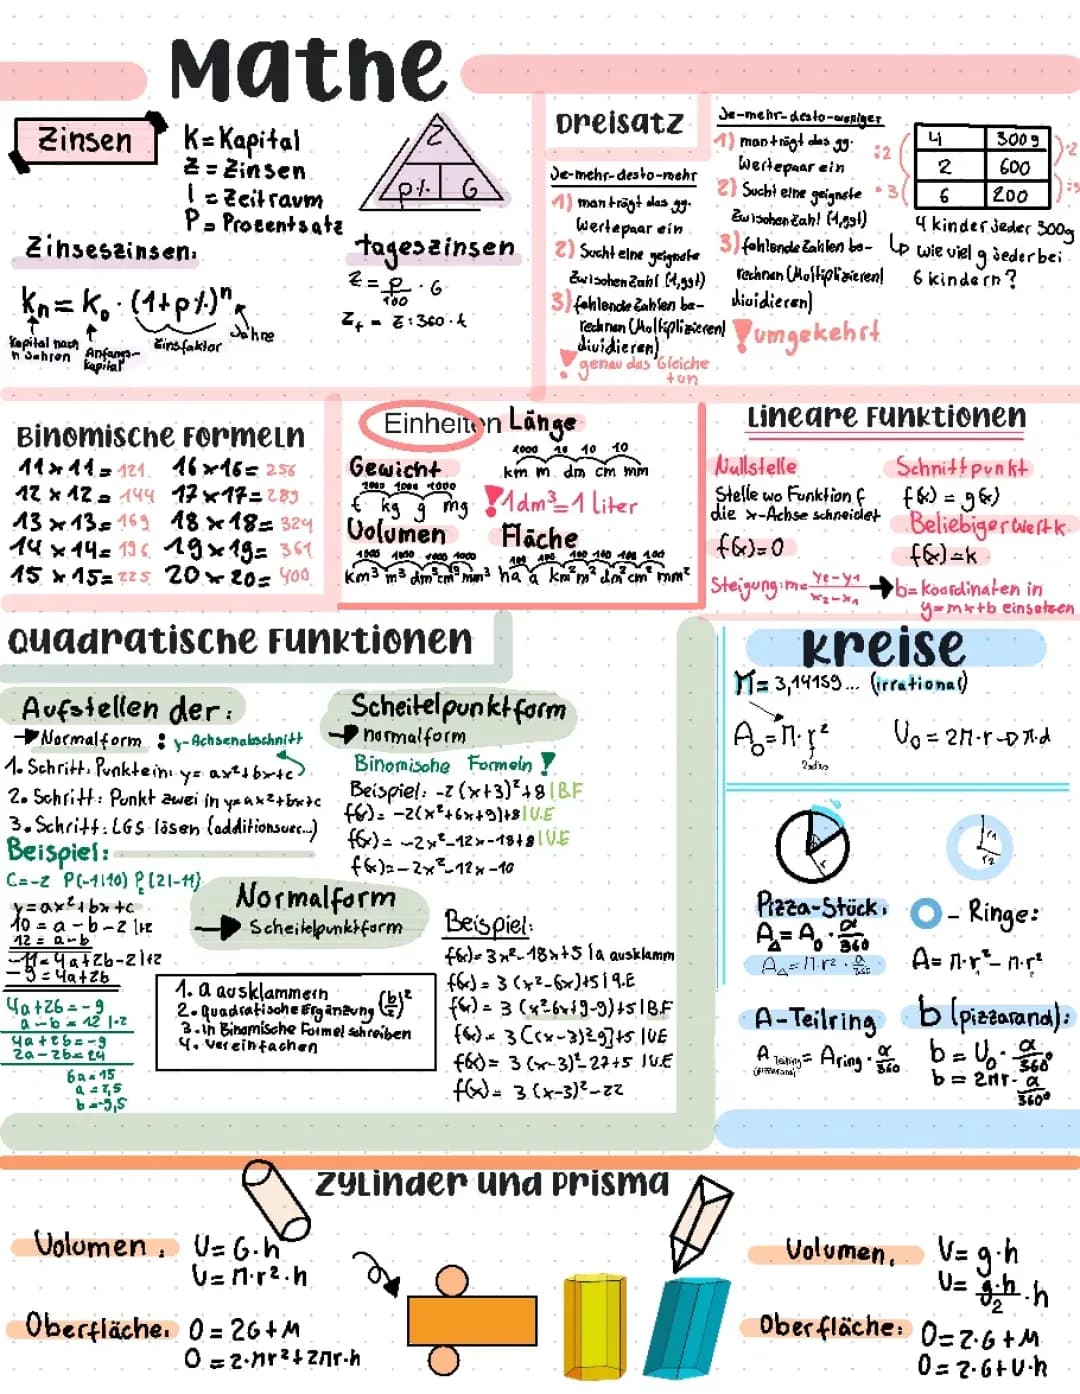 Mathe
Zinsen
K= Kapital
Z = Zinsen
I = Zeitraum
P = Prozentsatz
Z
p% G
Zinseszinsen:
Kn = K₀ · (1+p%)ⁿ
Kapital nach n Jahren
Anfangskapital
Zinsfaktor
Jahre
tageszinsen
Z = p/100 · G
Zt = Z:360·t
Dreisatz
Je-mehr-desto-mehr
1) man trägt das gg.
Wertepaar ein
2) Sucht eine geignete
Zwischenzahl (1,ggt)
3) fehlende Zahlen be-
rechnen (Multiplizieren/
dividieren)
! genau das Gleiche
tun
Je-mehr-desto-weniger
1) man trägt das gg.
Wertepaar ein
2) Sucht eine geignete
Zwischenzahl (1,ggt)
3) fehlende Zahlen be-
rechnen (Multiplizieren/
dividieren)
! umgekehrt
:2
·3
4 300g
2 600
6 200
·2
:3
4 kinder jeder 300g
↳ wie viel g jeder bei
6 kindern?
Binomische Formeln
11 x 11 = 121 16 x 16 = 256
12 x 12 = 144 17 x 17 = 289
13 x 13 = 169 18 x 18 = 324
14 x 14 = 196 19 x 19 = 361
15 x 15 = 225 20 x 20 = 400
Einheiten
Länge
1000 10 10 10
km m dm cm mm
Gewicht
1000 1000 1000
t kg g mg
! 1dm³ = 1 liter
Volumen
1000 1000 1000 1000
km³ m³ dm³ cm³ mm³
Fläche
100 100 100 100 100 100
ha a km² m² dm² cm² mm²
Lineare Funktionen
Nullstelle
Stelle wo Funktion f
die x-Achse schneidet
f(x)=0
Steigung: m= y2-y1 / x2-x1
Schnittpunkt
f(x) = g(x)
Beliebiger Wert k
f(x)=k
→ b= koordinaten in
y=mx+b einsetzen
Quadratische Funktionen
Aufstellen der:
→ Normalform : y-Achsenabschnitt
1. Schritt: Punkt ein: y= ax²+bx+c
2. Schritt: Punkt zwei in y=ax²+bx+c
3. Schritt: LGS lösen (additionsver...)
Beispiel:
C=-2 P(-1|10) P(2|-11)
y=ax²+bx+c
10 = a - b - 2 |+2
12 = a-b
-11= 4a+2b-2|+2
-9 = 4a+2b
4a+2b = -9
a-b = 12 |·2
4a+2b=-9
2a-2b=24
6a=15
a = 2,5
b=-9,5
Scheitelpunktform
→ normalform
Binomische Formeln !
Beispiel: -2(x+3)²+8 |BF
f(x)= -2(x²+6x+9)+8 |V.E
f(x)= -2x²-12x-18+8 |V.E
f(x)= -2x²-12x-10
Normalform
→ Scheitelpunktform
1. a ausklammern
2. quadratische Ergänzung (b/2)²
3. in Binomische Formel schreiben
4. vereinfachen
Beispiel:
f(x)= 3x²-18x+5 |a ausklamm
f(x)= 3(x²-6x)+5 |q.E
f(x)= 3(x²-6x+9-9)+5 |B.F
f(x)= 3[(x-3)²-9]+5 |V.E
f(x)= 3(x-3)²-27+5 |V.E
f(x)= 3(x-3)²-22
Kreise
π= 3,14159... (irrational)
A₀=π·r²
U₀ = 2π·r → π·d
b
r
r1
r2
Pizza-Stück:
A = A₀ · α/360
A = π·r² · α/360
- Ringe:
A= π·r² - π·r²
A-Teilring
A Teilring = A ring · α/360
b (pizzarand):
b = U₀ · α/360°
b = 2πr · α/360°
Zylinder und Prisma
Volumen:
V= G·h
V= π·r²·h
Oberfläche:
O = 2G+M
O = 2·πr²+2πr·h
Volumen:
V= g·h
V= g·h/2 · h
Oberfläche:
O=2·G+M
O=2·G+U·h